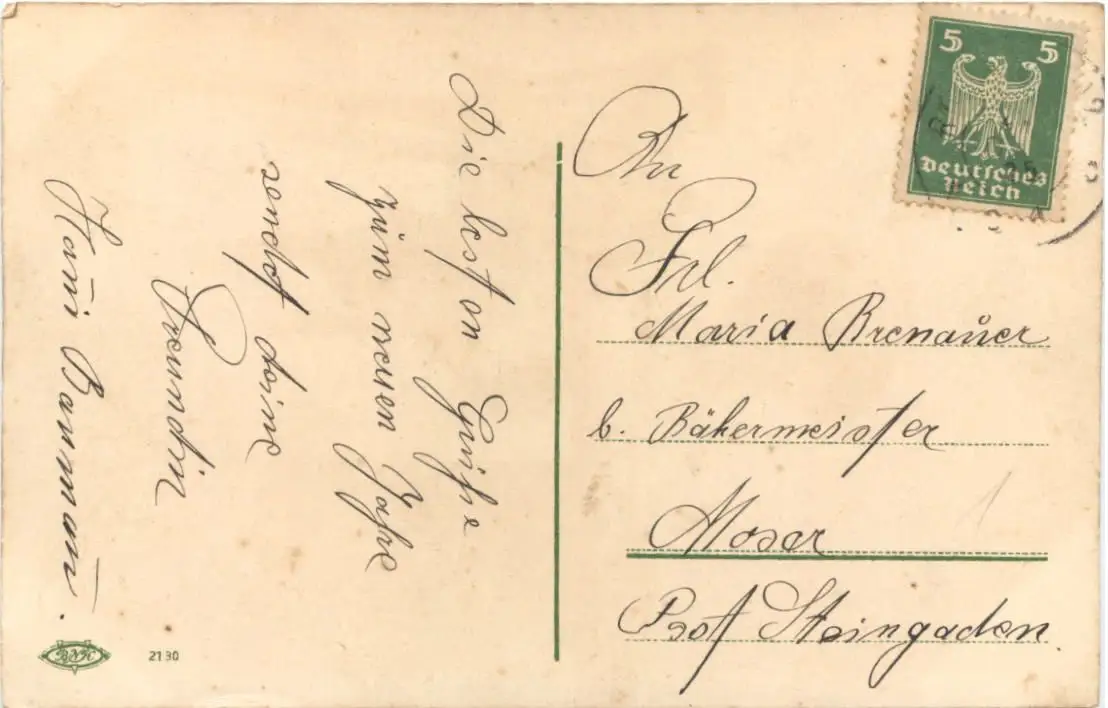 Die besten Grüße
zum neuen Jahre
sendet deine
Freundin
Hañi Baumañ.
An
Frl.
Maria Brenauer
b. Bäkermeister
Moser
Post Steingaden
5 5
Deutsches
Reich
2130